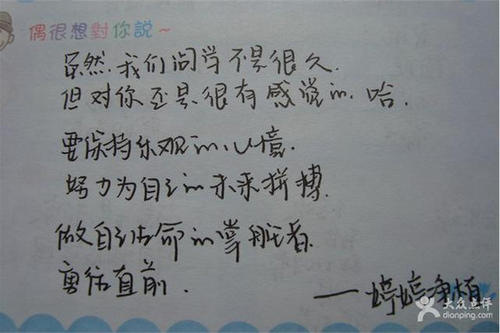 偶很想對你說~
虽然我们同学不是很久.
但对你还是很有感觉的.哈.
要保持乐观的心境.
努力为自己的未来拼搏.
做自己生命的掌舵者.
勇往直前.
——婷婷
大众点评
dianping.com